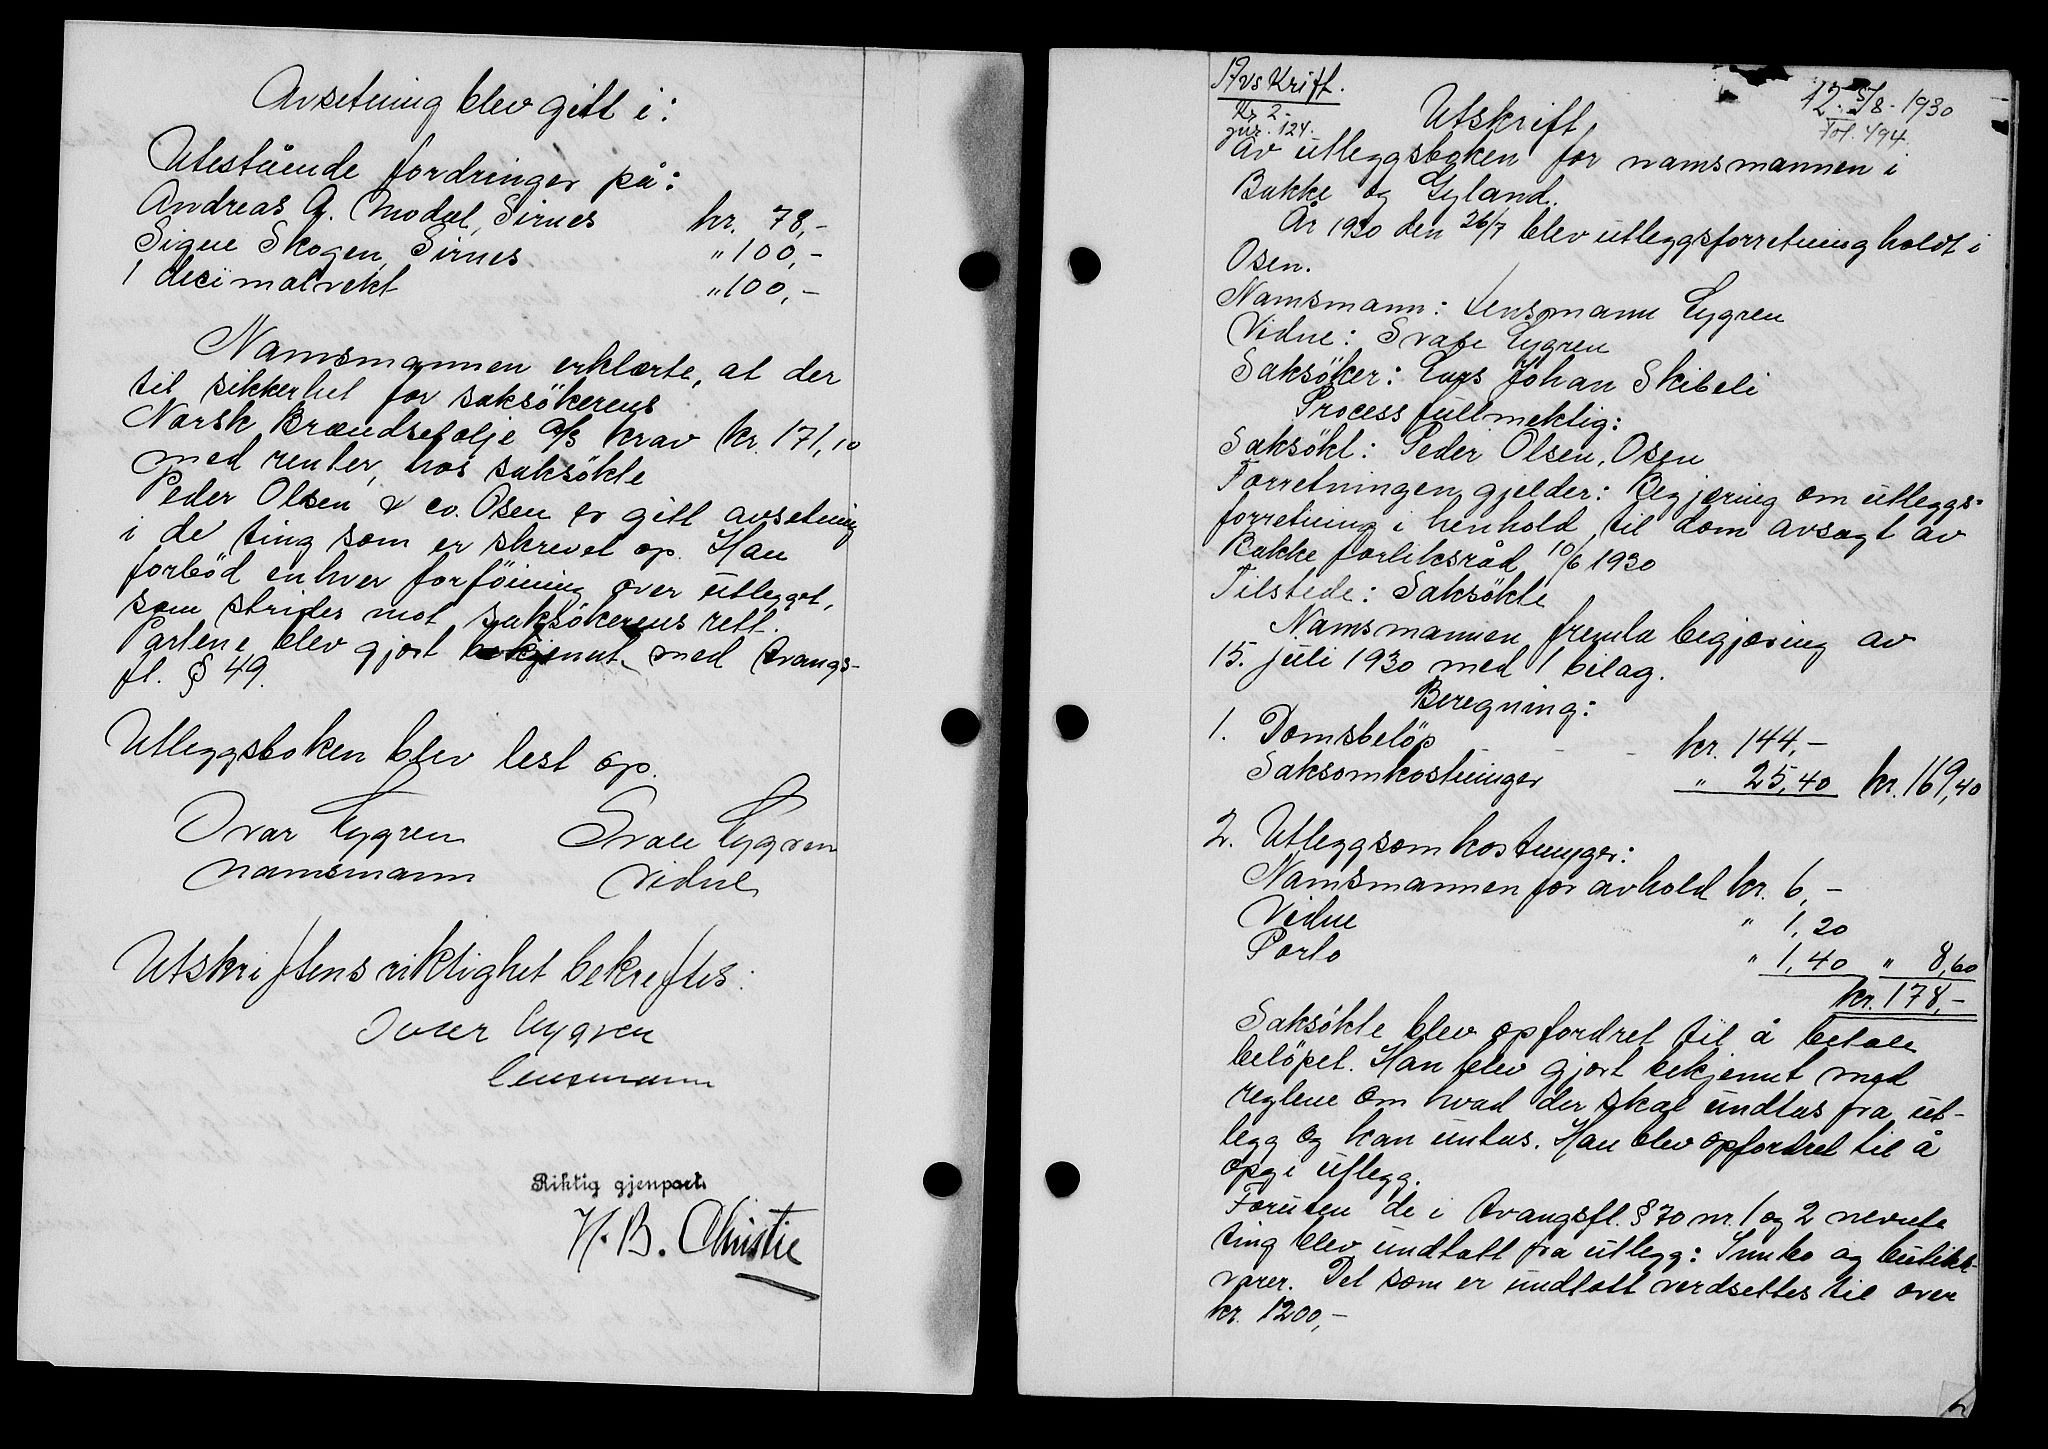 Avsetning blev gitt i:
Utestående fordringer på:
Andreas A. Modal, Sirnes kr. 78,-
Signe Skogen, Sirnes " 100,-
1 decimalvekt " 100,-
Namsmannen erklærte, at der
til sikkerhet for saksökerens
Norsk Brændselolje A/S krav kr. 171,10
med renter, hos saksökte
Peder Olsen & co. Osen er gitt avsetning
i de ting som er skrevet op. Han
forböd enhver forföining over utlegget,
som strider mot saksökerens rett.
Partene blev gjort bekjennt med tvangs-
fl. § 49.
Utleggsboken blev lest op.
Ivar Lygren Svale Lygren
namsmann vidne
Utskriftens riktighet bekreftes:
Ivar Lygren
lensmann
Riktig gjenpart.
H. B. Christie
Avskrift.
Kr. 2.-
jnr. 124.
12. 5/8-1930
Fol. 494.
Utskrift
av utleggsboken for namsmannen i
Bakke og Gyland.
År 1930 den 26/7 blev utleggsforretning holdt i
Osen.
Namsmann: Lensmann Lygren
Vidne: Svale Lygren
Saksöker: Lars Johan Skibeli
Processfullmektig:
Saksökt: Peder Olsen, Osen
Forretningen gjelder: Begjæring om utleggs-
forretning i henhold til dom avsagt av
Bakke forliksråd 10/6 1930
Tilstede: Saksökte
Namsmannen fremla begjæring av
15. juli 1930 med 1 bilag.
Beregning:
1. Domsbelöp - - - kr. 144,-
Saksomkostninger " 25,40 kr. 169,40
2. Utleggsomkostninger:
Namsmannen for avhold kr. 6,-
Vidne " 1,20
Porto " 1,40 " 8,60
kr. 178,-
Saksökte blev opfordret til å betale
belöpet. Han blev gjort bekjennt med
reglene om hvad der skal undtas fra ut-
legg og kan untas. Han blev opfordret til å
opgi utlegg.
Foruten de i tvangsfl. § 70 nr. 1 og 2 nevnte
ting blev undtatt fra utlegg: Innbo og butikk-
varer. Det som er undtatt verdsettes til over
kr. 1200,-